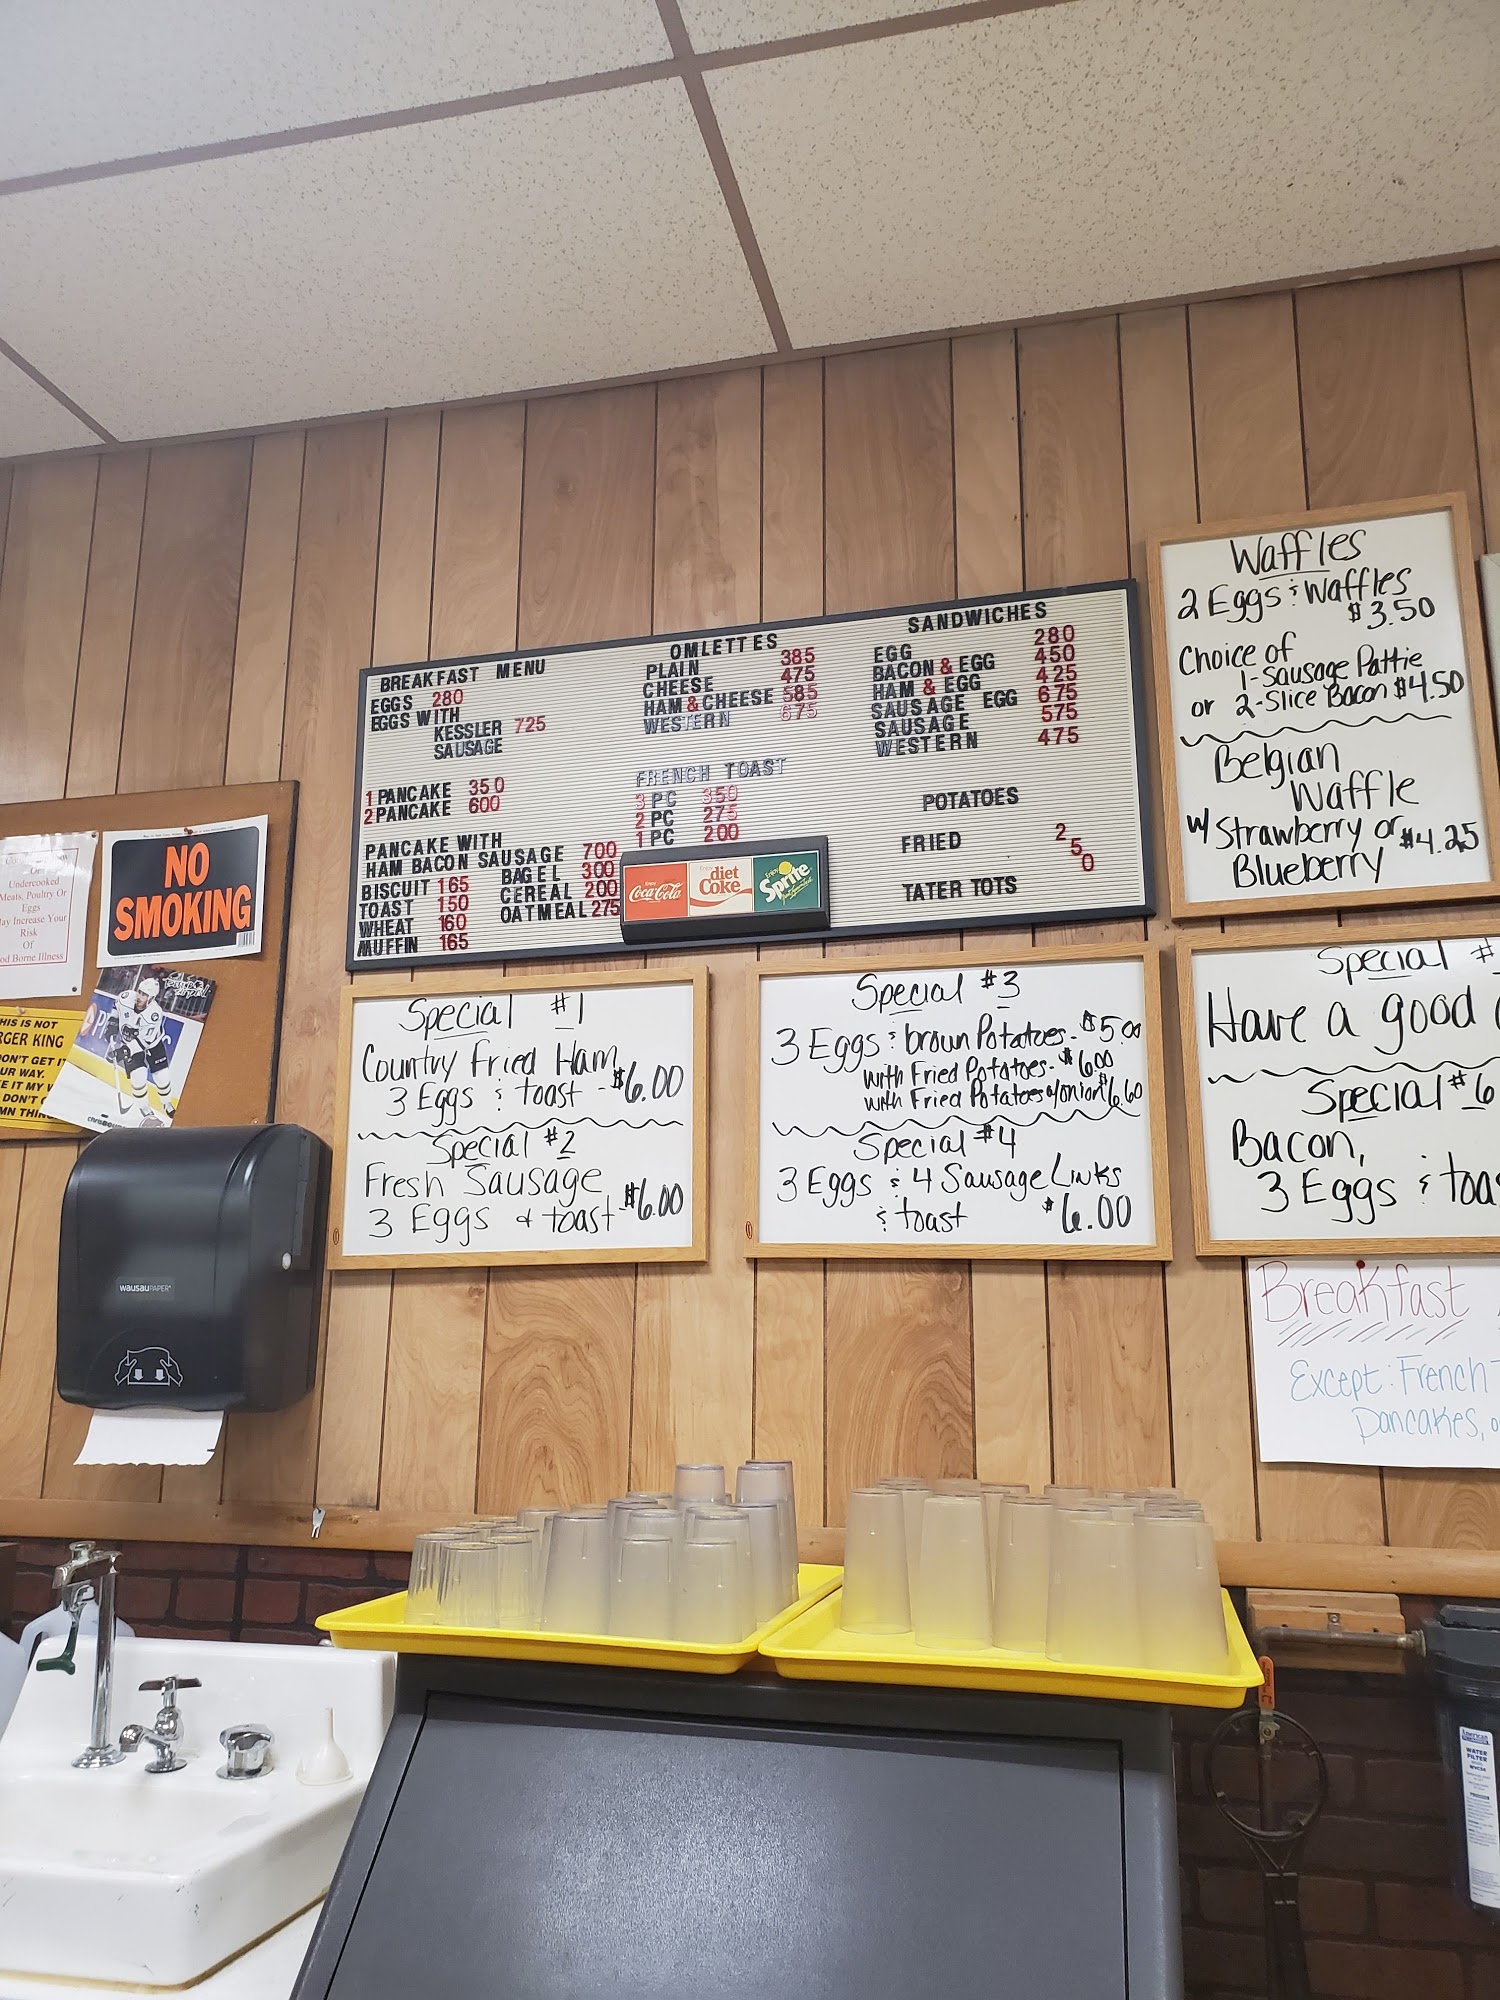 BREAKFAST MENU
EGGS 280
EGGS WITH
KESSLER 725
SAUSAGE
1 PANCAKE 350
2 PANCAKE 600
PANCAKE WITH
HAM BACON SAUSAGE 700
BISCUIT 165
TOAST 150
WHEAT 160
MUFFIN 165
BAGEL 300
CEREAL 200
OATMEAL 275
OMLETTES
PLAIN 385
CHEESE 475
HAM & CHEESE 585
WESTERN 675
FRENCH TOAST
3 PC 350
2 PC 275
1 PC 200
Enjoy
Coca-Cola
diet
Coke
Enjoy
Sprite
SANDWICHES
EGG 280
BACON & EGG 450
HAM & EGG 425
SAUSAGE EGG 675
SAUSAGE 575
WESTERN 475
POTATOES
FRIED 250
TATER TOTS
Waffles
2 Eggs & Waffles
$3.50
Choice of
1-Sausage Pattie
or 2-Slice Bacon $4.50
Belgian
Waffle
w/ Strawberry or $4.25
Blueberry
Undercooked
Meats, Poultry Or
Eggs
May Increase Your
Risk
Of
Food Borne Illness
NO
SMOKING
THIS IS NOT
RGER KING
DON'T GET IT
UR WAY.
E IT MY
DON'T G
MN THING
Special #1
Country Fried Ham
3 Eggs & toast - $6.00
Special #2
Fresh Sausage
3 Eggs & toast - $6.00
Special #3
3 Eggs & brown Potatoes - $5.00
with Fried Potatoes - $6.00
with Fried Potatoes w/onion $6.60
Special #4
3 Eggs & 4 Sausage Links
& toast $6.00
Special #
Have a good
Special #6
Bacon,
3 Eggs & toa
Breakfast
Except: French
Pancakes,
WAUSAUPAPER
American
WATER
FILTER